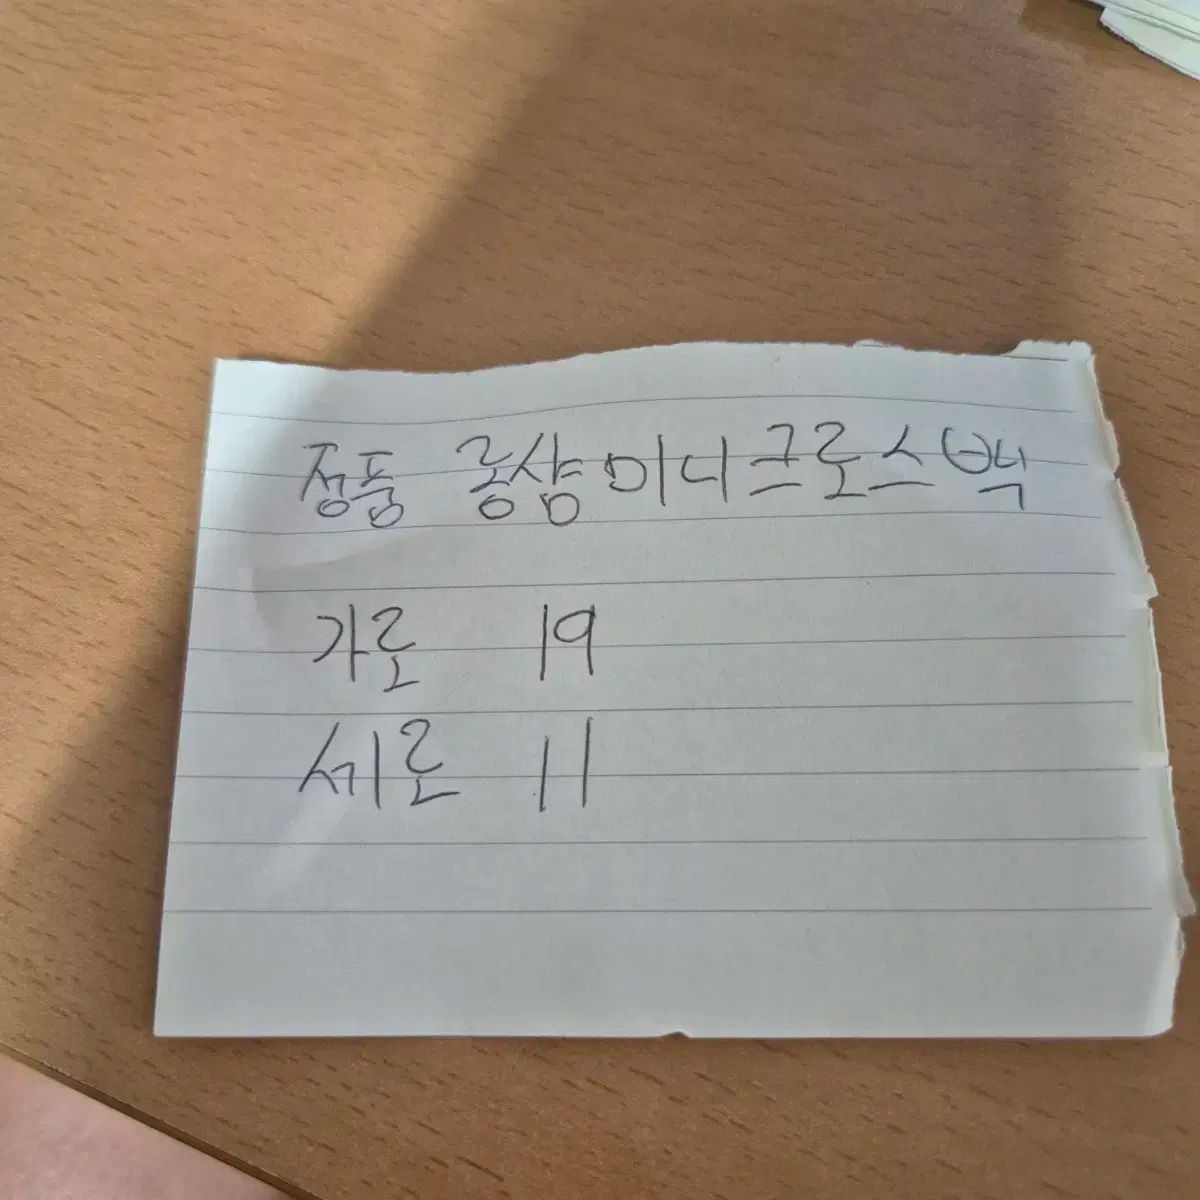 정품 롱샴 미니 크로스백
가로 19
세로 11